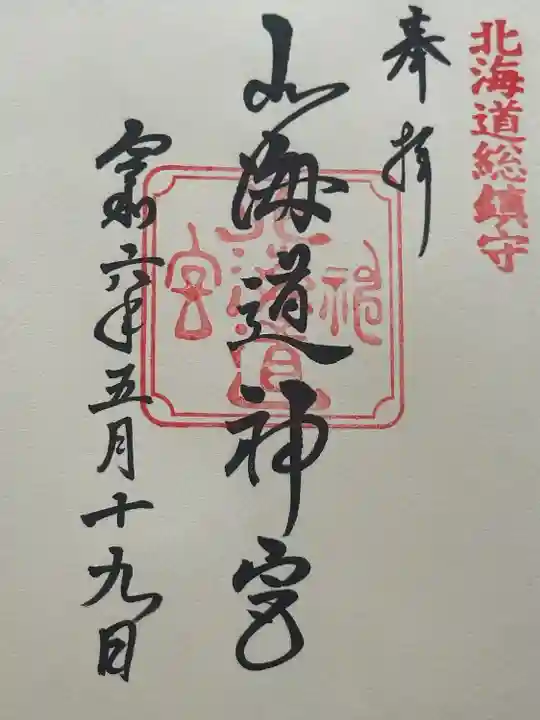 北海道総鎮守
奉拝
北海道神宮
令和六年五月十九日
北海道神宮